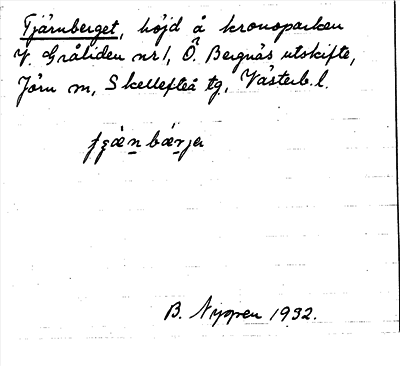 Tjärnberget, höjd å kronoparken
V. Gråliden nr 1, Ö. Bergnäs utskifte,
Jörn sn, Skellefteå tg, Västerb. l.
B. Nygren 1932.